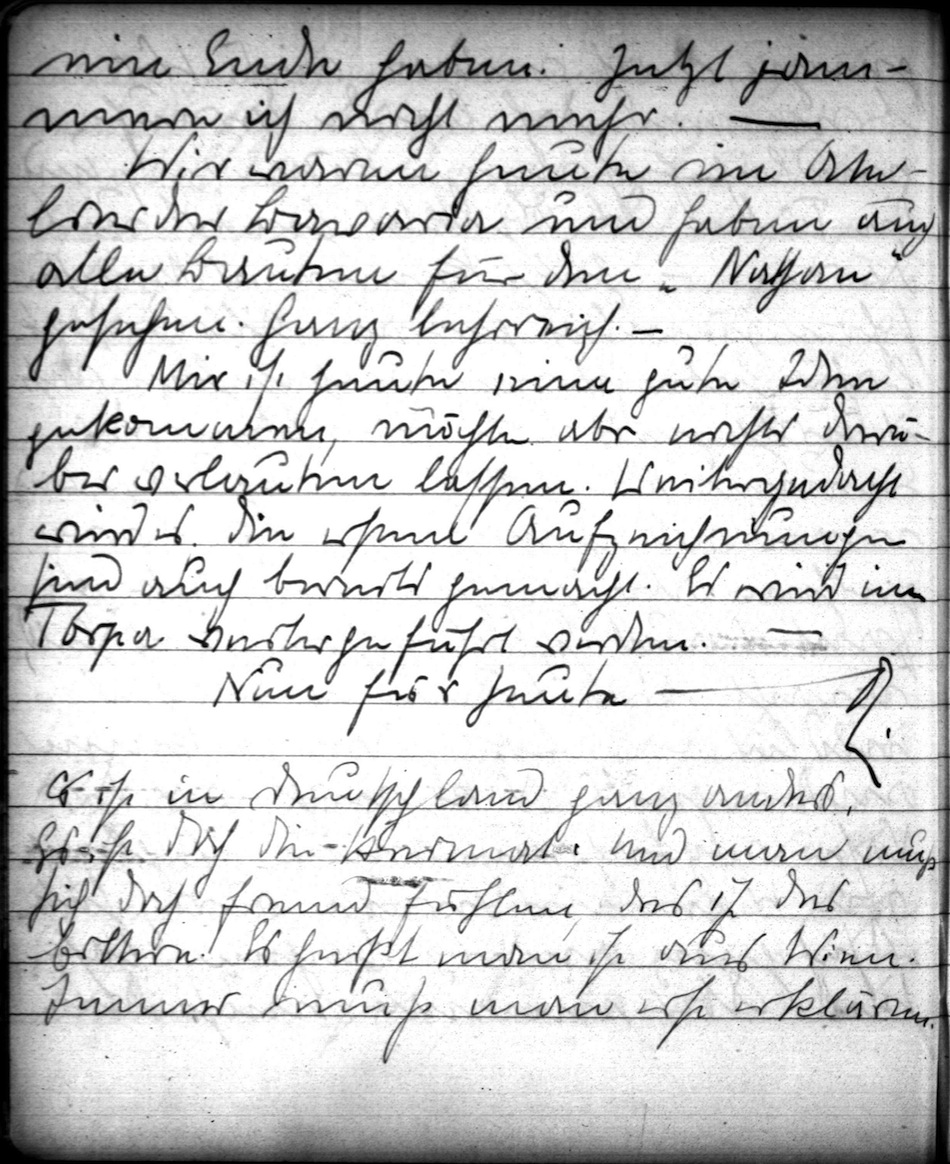 ein Ende haben. Jetzt jam-
mere ich nicht mehr. —
Wir waren heute im Ate-
lier der Bavaria und haben auch
alle Bauten für den „Nathan“
gesehen. Ganz lehrreich. —
Mir ist heute eine gute Idee
gekommen, möchte aber nichts darü-
ber verlauten lassen. Weitergedacht
wird es. Die ersten Aufzeichnungen
sind auch bereits gemacht. Es wird in
weitergeführt werden. —
Nun für heute — R.
Es ist in Deutschland ganz anders.
Es ist doch die Heimat. Und man muß
sich doch fremd fühlen, das ist das
Bittere. Es heißt man ist aus Wien.
Immer muß man erst erklären.